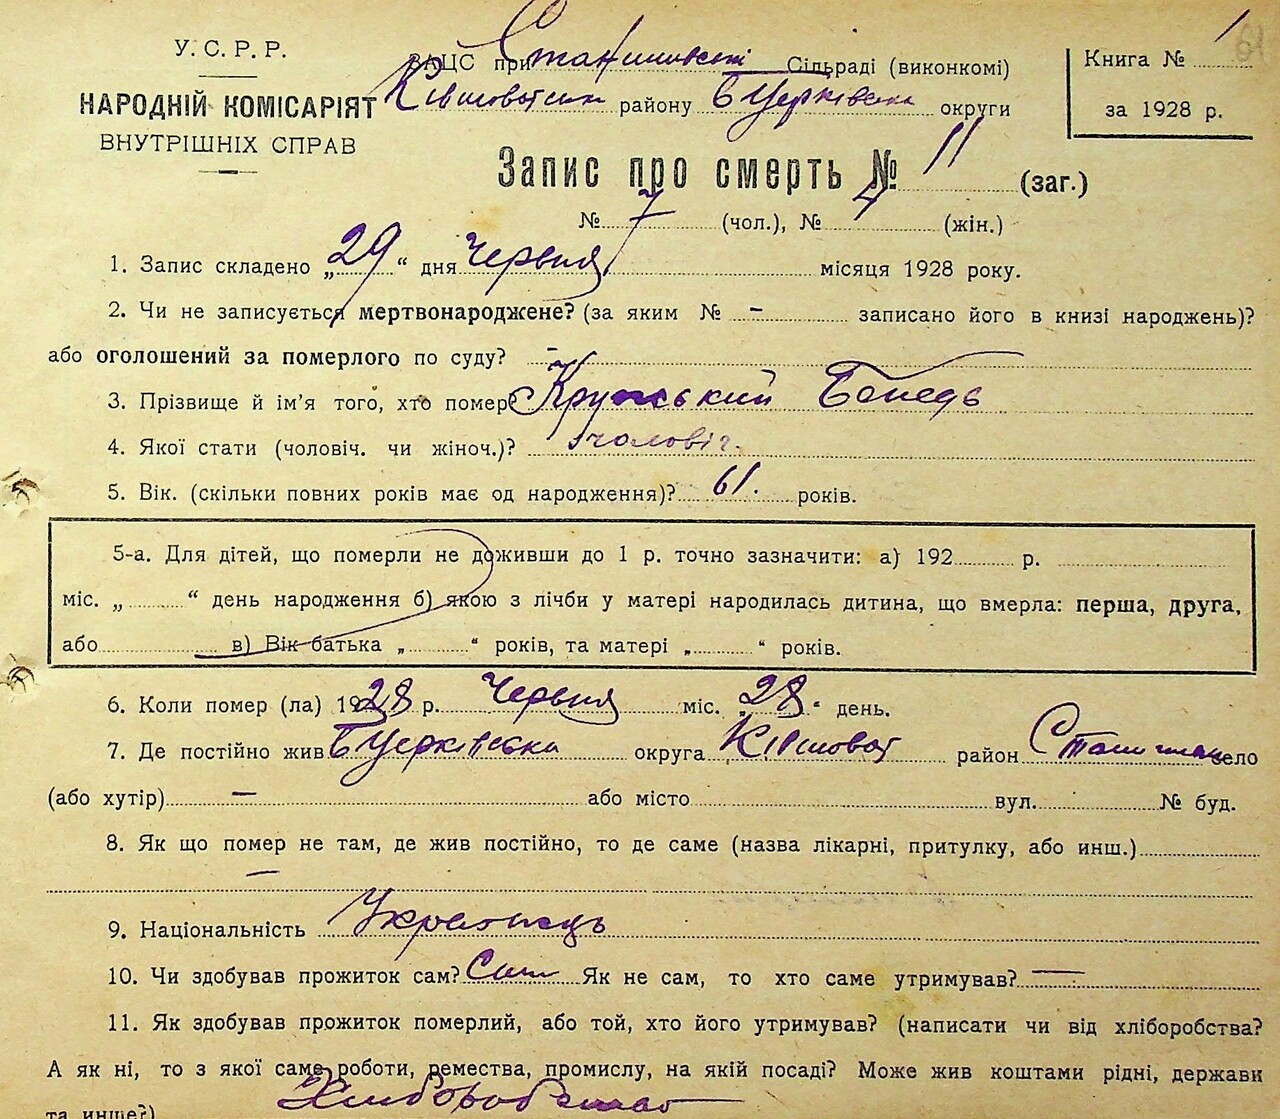 У. С. Р. Р.
НАРОДНІЙ КОМІСАРІЯТ
ВНУТРІШНІХ СПРАВ
ЗАЦС при Станишовській Сільраді (виконкомі)
Ківшоватськ району Б Церківська округи
Книга № 1
за 1928 р.
61
Запис про смерть № 11 (заг.)
№ 7 (чол.), № 4 (жін.)
1. Запис складено „ 29 “ дня Червня місяця 1928 року.
2. Чи не записується мертвонароджене? (за яким № – записано його в книзі народжень)?
або оголошений за померлого по суду? –
3. Прізвище й ім'я того, хто помер
4. Якої стати (чоловіч. чи жіноч.)? чоловіч.
5. Вік. (скільки повних років має од народження)? 61. років.
5-а. Для дітей, що померли не доживши до 1 р. точно зазначити: а) 192 р.
міс. „ “ день народження б) якою з лічби у матері народилась дитина, що вмерла: перша, друга,
або в) Вік батька „ “ років, та матері „ “ років.
6. Коли помер (ла) 1928 р. Червня міс. „ 28 “ день.
7. Де постійно жив Б Церківська округа Ківшоват район село
(або хутір) – або місто вул. № буд.
8. Як що помер не там, де жив постійно, то де саме (назва лікарні, притулку, або инш.)
–
9. Національність Українець
10. Чи здобував прожиток сам? Сам Як не сам, то хто саме утримував? –
11. Як здобував прожиток померлий, або той, хто його утримував? (написати чи від хліборобства?
А як ні, то з якої саме роботи, ремества, промислу, на якій посаді? Може жив коштами рідні, держави
та инше?)